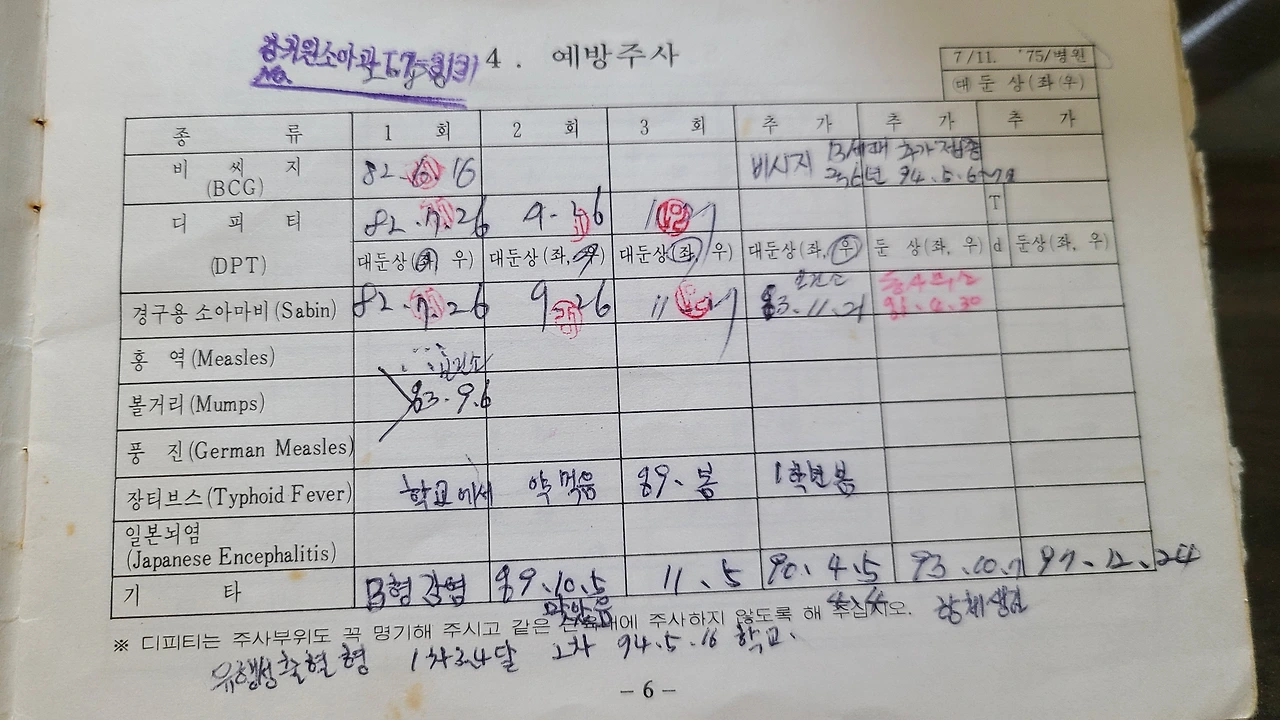 4. 예방주사
7/11. '75/병원
대둔상(좌(우)
종 류 1 회 2 회 3 회 추 가 추 가 추 가
비 씨 지 (BCG) 82. 6. 16 비시지 13세때 추가접종
94. 5. 6
디 피 티 82. 7. 26 9. 26 11 T
(DPT) 대둔상(좌, 우) 대둔상(좌, 우) 대둔상(좌, 우) 대둔상(좌, 우) 둔 상(좌, 우) d 둔상(좌, 우)
경구용 소아마비(Sabin) 82. 7. 26 9 26 11 보건소 83. 11. 21 4. 30
홍 역(Measles) 보건소
볼거리(Mumps) 83. 9. 6
풍 진(German Measles)
장티브스(Typhoid Fever) 학교에서 약 먹음 89. 봄 1학년봄
일본뇌염
(Japanese Encephalitis)
기 타 B형 간염 89. 10. 5 11. 5 90. 4. 5 93. 10. 7 97. 12. 24
항체생김
※ 디피티는 주사부위도 꼭 명기해 주시고 같은 에 주사하지 않도록 해 주십시오.
유행성출혈형 1차 2차 94. 5. 16 학교.
- 6 -